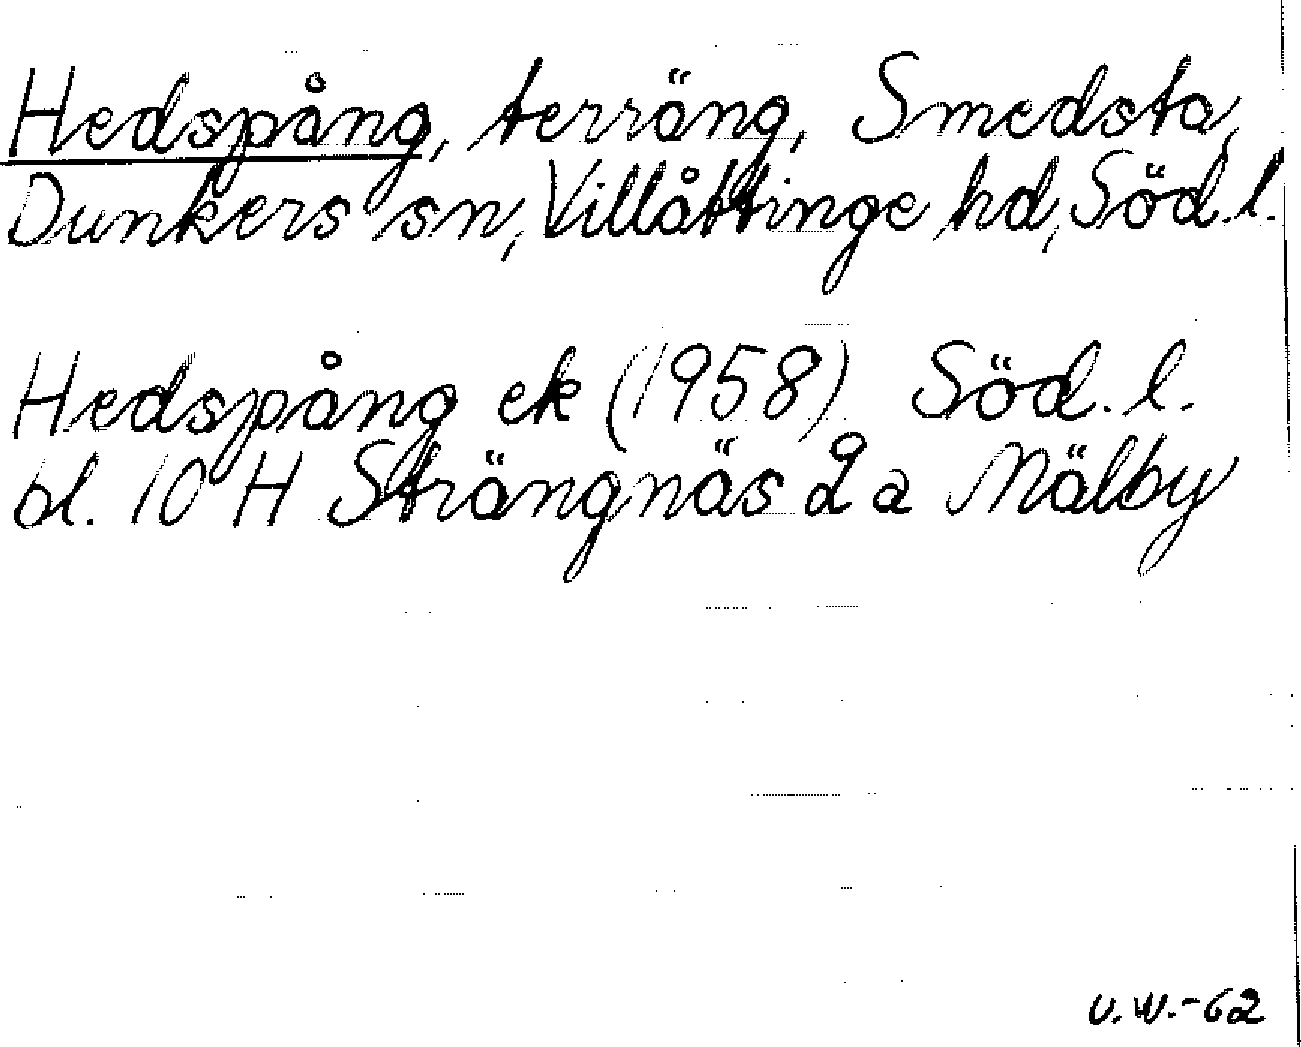 Hedspång, terräng, Smedsta,
Dunkers sn, Villåttinge hd, Söd.l.
Hedspång ek (1958) Söd. l.
bl. 10 H Strängnäs 2 a Mälby
U.W.-62